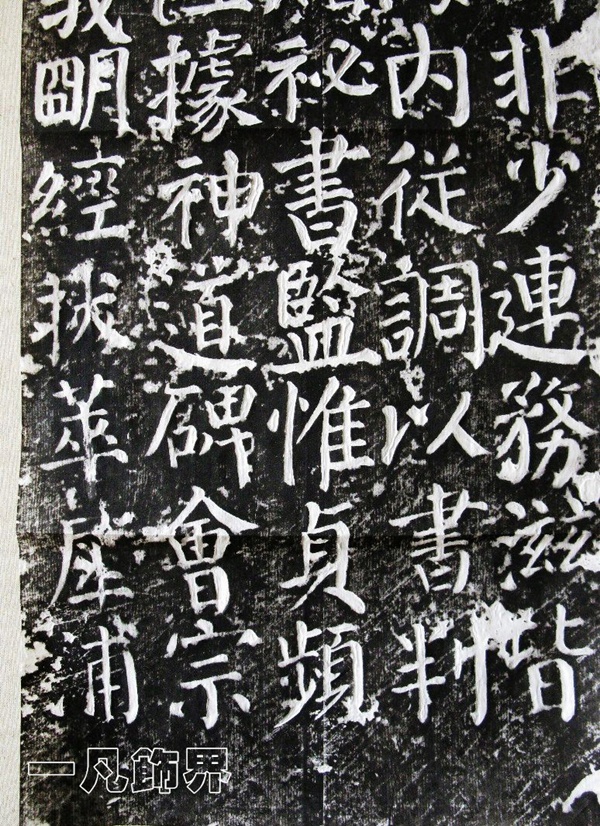 非少連務滋皆
內從調以書判
祕書監惟貞頻
據神道碑會宗
朙經拔萃犀浦
一凡飾界